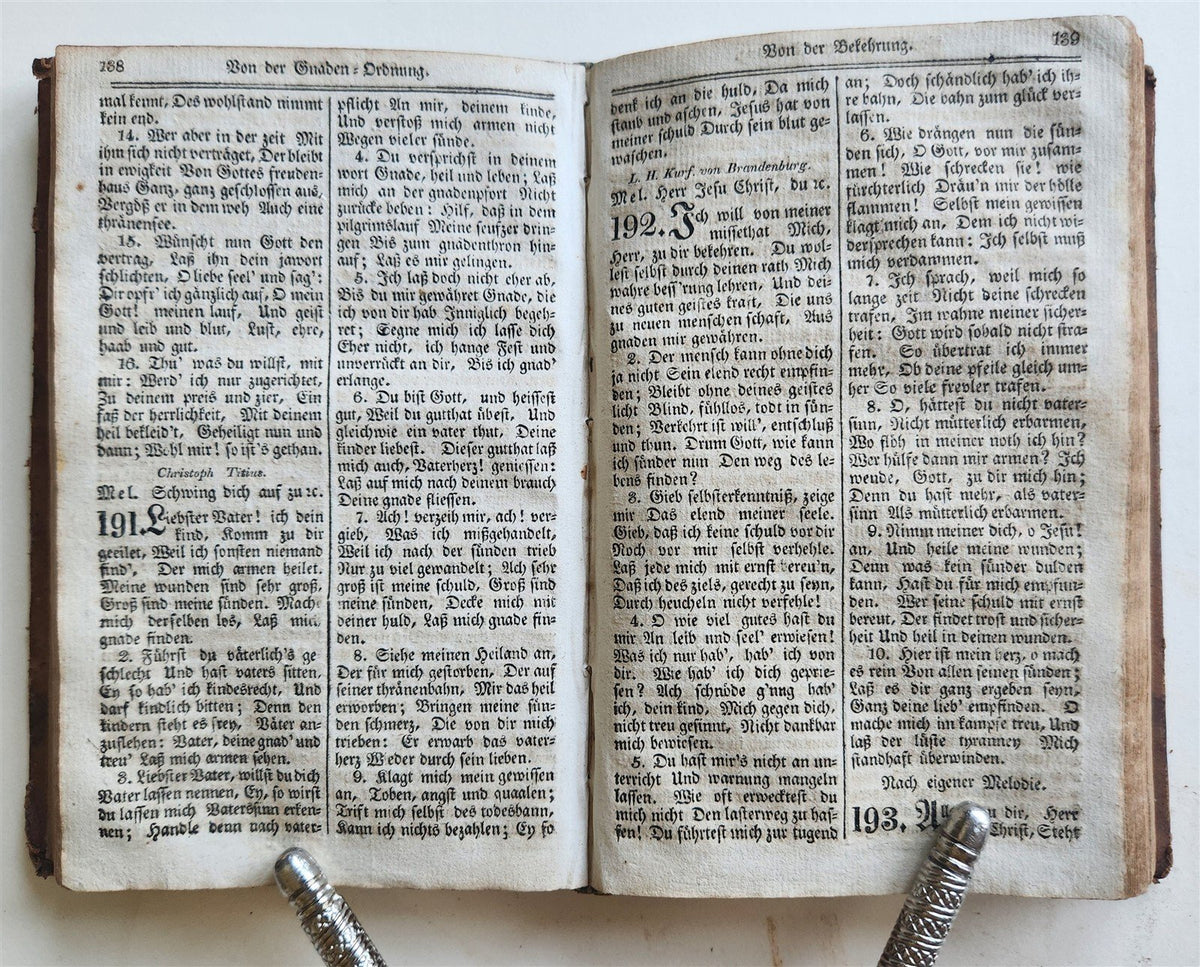 138
Von der Gnaden-Ordnung.
mal kennt, Des wohlstand nimmt
kein end.
14. Wer aber in der zeit Mit
ihm sich nicht verträget, Der bleibt
in ewigkeit Von Gottes freuden-
haus Ganz, ganz geschlossen aus,
Vergöß er in dem weh Auch eine
thränensee.
15. Wünscht nun Gott den
vertrag, Laß ihn dein jawort
schlichten, O liebe seel' und sag':
Dir opfr' ich gänzlich auf, O mein
Gott! meinen lauf, Und geist
und leib und blut, Lust, ehre,
haab und gut.
16. Thu' was du willst, mit
mir: Werd' ich nur zugerichtet,
Zu deinem preis und zier, Ein
faß der herrlichkeit, Mit deinem
heil bekleid't, Geheiligt nun und
dann; Wohl mir! so ist's gethan.
Christoph Titius.
Mel. Schwing dich auf zu ꝛc.
191. Liebster Vater! ich dein
kind, Komm zu dir
geeilet, Weil ich sonsten niemand
find', Der mich armen heilet.
Meine wunden sind sehr groß,
Groß sind meine sünden. Mach
mich derselben los, Laß mich
gnade finden.
2. Führst du väterlich's ge-
schlecht Und hast vaters sitten,
Ey so hab' ich kindesrecht, Und
darf kindlich bitten; Denn den
kindern steht es frey, Väter an-
zuflehen: Vater, deine gnad' und
treu' Laß mich armen sehen.
3. Liebster Vater, willst du dich
Vater lassen nennen, Ey, so wirst
du lassen mich Vaterssinn erken-
nen; Handle denn nach vater-
pflicht An mir, deinem kinde,
Und verstoß mich armen nicht
Wegen vieler sünde.
4. Du versprichst in deinem
wort Gnade, heil und leben; Laß
mich an der gnadenpfort Nicht
zurücke beben: Hilf, daß in dem
pilgrimslauf Meine seufzer drin-
gen Bis zum gnadenthron hin-
auf; Laß es mir gelingen.
5. Ich laß doch nicht eher ab,
Bis du mir gewähret Gnade, die
ich von dir hab Inniglich begeh-
ret; Segne mich ich lasse dich
Eher nicht, ich hange Fest und
unverrückt an dir, Bis ich gnad'
erlange.
6. Du bist Gott, und heissest
gut, Weil du gutthat übest, Und
gleichwie ein vater thut, Deine
kinder liebest. Dieser gutthat laß
mich auch, Vaterherz! geniessen:
Laß auf mich nach deinem brauch
Deine gnade fliessen.
7. Ach! verzeih mir, ach! ver-
gieb, Was ich mißgehandelt,
Weil ich nach der sünden trieb
Nur zu viel gewandelt; Ach sehr
groß ist meine schuld, Groß sind
meine sünden, Decke mich mit
deiner huld, Laß mich gnade fin-
den.
8. Siehe meinen Heiland an,
Der für mich gestorben, Der auf
seiner thränenbahn, Mir das heil
erworben; Bringen meine sün-
den schmerz, Die von dir mich
trieben: Er erwarb das vater-
herz Wieder durch sein lieben.
9. Klagt mich mein gewissen
an, Toben, angst und quaalen;
Trift mich selbst des todesbann,
Kann ich nichts bezahlen; Ey so
Von der Bekehrung.
139
denk ich an die huld, Da mich
staub und aschen, Jesus hat von
meiner schuld Durch sein blut ge-
waschen.
L. H. Kurf. von Brandenburg.
Mel. Herr Jesu Christ, du ꝛc.
192. Ich will von meiner
missethat Mich,
Herr, zu dir bekehren. Du wol-
lest selbst durch deinen rath Mich
wahre bess'rung lehren, Und dei-
nes guten geistes kraft, Die uns
zu neuen menschen schaft, Aus
gnaden mir gewähren.
2. Der mensch kann ohne dich
ja nicht Sein elend recht empfin-
den; Bleibt ohne deines geistes
licht Blind, fühllos, todt in sün-
den; Verkehrt ist will', entschluß
und thun. Drum Gott, wie kann
ich sünder nun Den weg des le-
bens finden?
3. Gieb selbsterkenntniß, zeige
mir Das elend meiner seele.
Gieb, daß ich keine schuld vor dir
Noch vor mir selbst verhehle.
Laß jede mich mit ernst bereu'n,
Daß ich des ziels, gerecht zu seyn,
Durch heucheln nicht verfehle!
4. O wie viel gutes hast du
mir An leib und seel' erwiesen!
Was ich nur hab', hab' ich von
dir. Wie hab' ich dich geprie-
sen? Ach schnöde g'nug hab'
ich, dein kind, Mich gegen dich,
nicht treu gesinnt, Nicht dankbar
mich bewiesen.
5. Du hast mir's nicht an un-
terricht Und warnung mangeln
lassen. Wie oft erwecktest du
mich nicht Den lasterweg zu has-
sen! Du führtest mich zur tugend
an; Doch schändlich hab' ich ih-
re bahn, Die bahn zum glück ver-
lassen.
6. Wie drängen nun die sün-
den sich, O Gott, vor mir zusam-
men! Wie schrecken sie! wie
fürchterlich Dräu'n mir der hölle
flammen! Selbst mein gewissen
klagt mich an, Dem ich nicht wi-
dersprechen kann: Ich selbst muß
mich verdammen.
7. Ich sprach, weil mich so
lange zeit Nicht deine schrecken
trafen, Im wahne meiner sicher-
heit: Gott wird sobald nicht stra-
fen. So übertrat ich immer
mehr, Ob deine pfeile gleich um-
her So viele frevler trafen.
8. O, hättest du nicht vater-
sinn, Nicht mütterlich erbarmen,
Wo flöh in meiner noth ich hin?
Wer hülfe dann mir armen? Ich
wende, Gott, zu dir mich hin;
Denn du hast mehr, als vater-
sinn Als mütterlich erbarmen.
9. Nimm meiner dich, o Jesu!
an, Und heile meine wunden;
Denn was kein sünder dulden
kann, Hast du für mich empfun-
den. Wer seine schuld mit ernst
bereut, Der findet trost und sicher-
heit Und heil in deinen wunden.
10. Hier ist mein herz, o mach
es rein Von allen seinen sünden;
Laß es dir ganz ergeben seyn,
Ganz deine lieb' empfinden. O
mache mich im kampfe treu, Und
laß der lüste tyranney Mich
standhaft überwinden.
Nach eigener Melodie.
193. dir, Herr
Christ, Steht